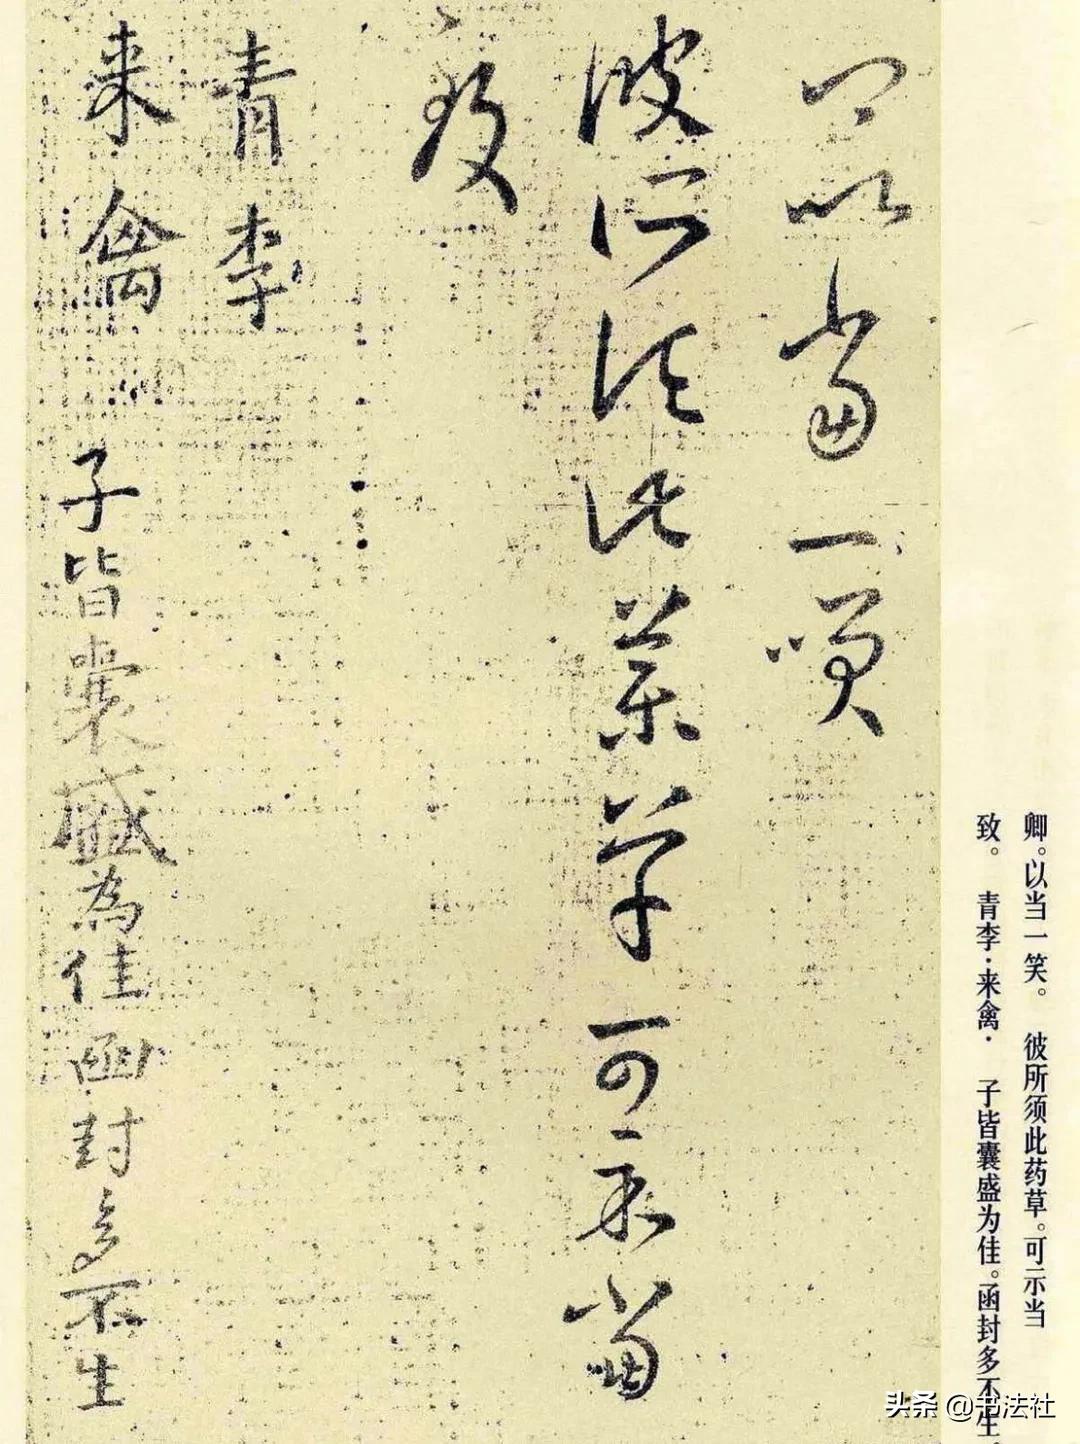 卿。以当一笑。 彼所须此药草。可示当
致。 青李·来禽· 子皆囊盛为佳。函封多不生
卿以當一咲
彼所須此藥草可示當
致
青李
来禽 子皆囊盛為佳函封多不生
头条 @书法社